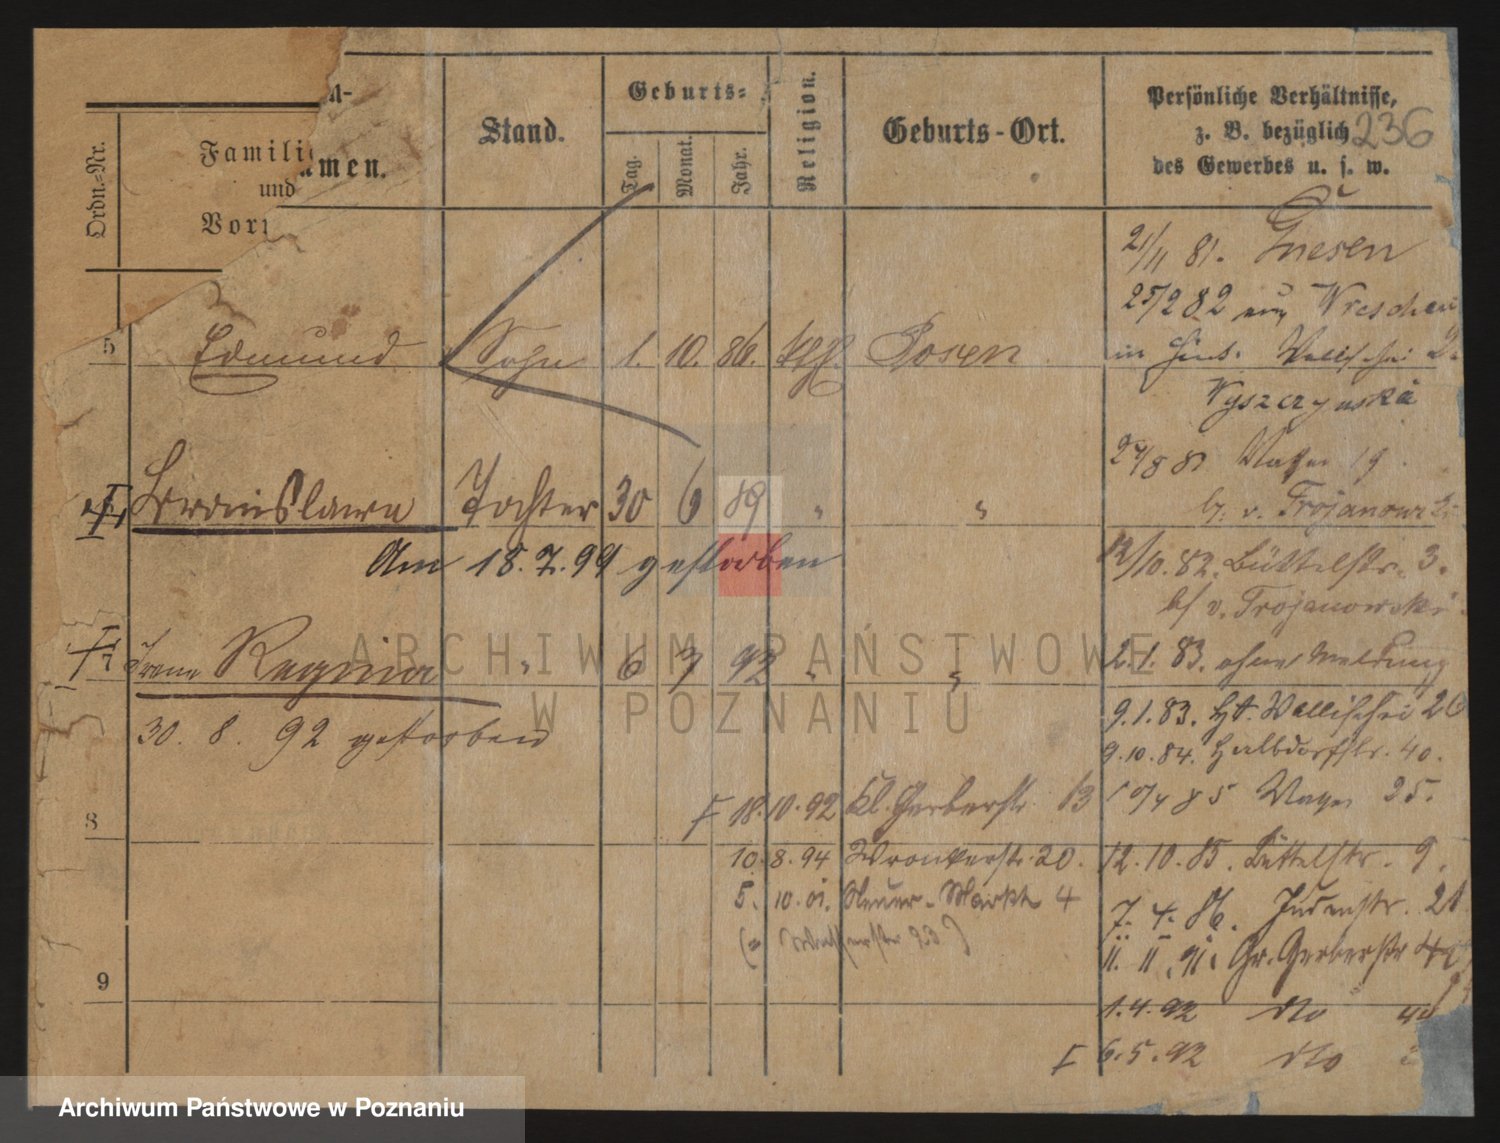 Ordn.-Nr.
Famili
und
Vor
n-
amen.
Stand.
Geburts-
Tag.
Monat.
Jahr.
Religion.
Geburts-Ort.
Persönliche Verhältnisse,
z. B. bezüglich
des Gewerbes u. s. w.
236
5 Edmund Sohn 1. 10. 86. kth. Posen
Bronislawa Tochter 30 6 89 " "
Am 18.7.99 gestorben
7 Irene Regina " 6 7 92 " "
30. 8. 92 gestorben
8
9
18.10.92 Kl. Gerberstr. 13
10.8.94 Wronkerstr. 20.
5. 10.01. Neuer-Markt 4
21/11 81. Gnesen
25/2 82 aus Wreschen
in Wallischei 2
Wyszczynska
24/8 81
b. v. Trojanowski
12/10.82. Büttelstr. 3.
b/ v. Trojanowski
2.1.83. ohne Meldung
9.1.83. Wallischei 20
9.10.84. Halbdorfstr. 40.
10/4 85 25.
12.10.85. Büttelstr. 9.
7.4.86. Judenstr. 21
11.11.91. Gr. Gerberstr
1.4.92 dto
6.5.92 dto
ARCHIWUM PAŃSTWOWE
W POZNANIU
Archiwum Państwowe w Poznaniu